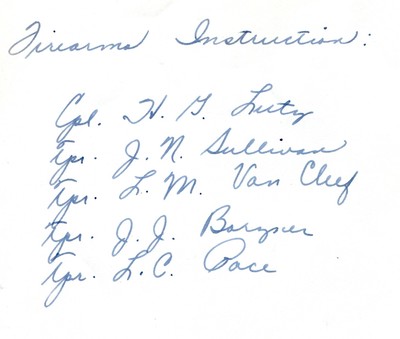 Firearms Instruction:
Cpl. H. G. Lutz
Tpr. J. N. Sullivan
Tpr. L. M. Van Cleef
Tpr. J. J.
Tpr. L. C. Pace